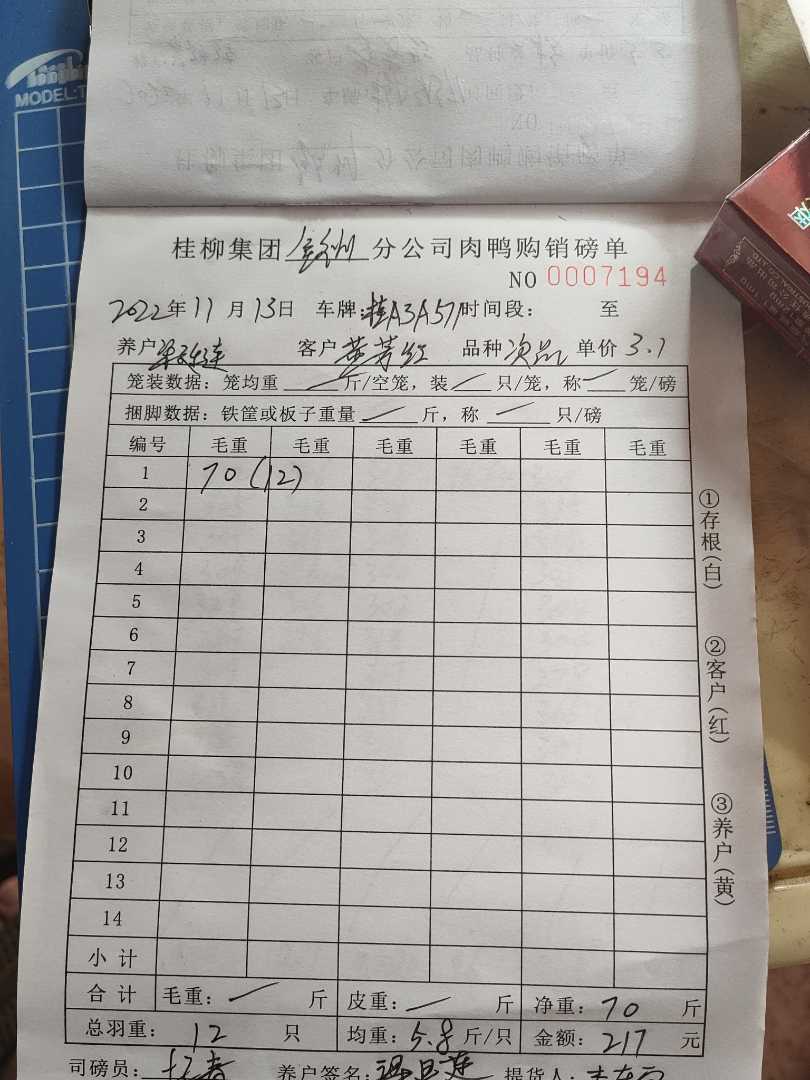 MODEL:T
桂柳集团 钦州 分公司肉鸭购销磅单
NO 0007194
2022年11月13日 车牌:桂A3A571 时间段: 至
养户 客户 黄 红 品种 次品 单价 3.1
笼装数据: 笼均重 — 斤/空笼, 装 — 只/笼, 称 — 笼/磅
捆脚数据: 铁筐或板子重量 — 斤, 称 — 只/磅
编号 毛重 毛重 毛重 毛重 毛重 毛重
1 70(12)
2
3
4
5
6
7
8
9
10
11
12
13
14
小计
合计 毛重: — 斤 皮重: — 斤 净重: 70 斤
总羽重: 12 只 均重: 5.8 斤/只 金额: 217 元
司磅员: 养户签名: 提货人:
①存根(白) ②客户(红) ③养户(黄)